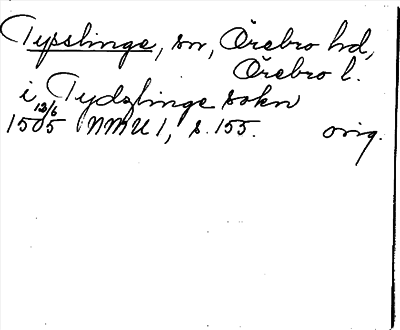 Tysslinge, sn, Örebro hd,
Örebro l.
i Tydzlinge sokn
1505 12/6 NMU 1, s. 155. orig.